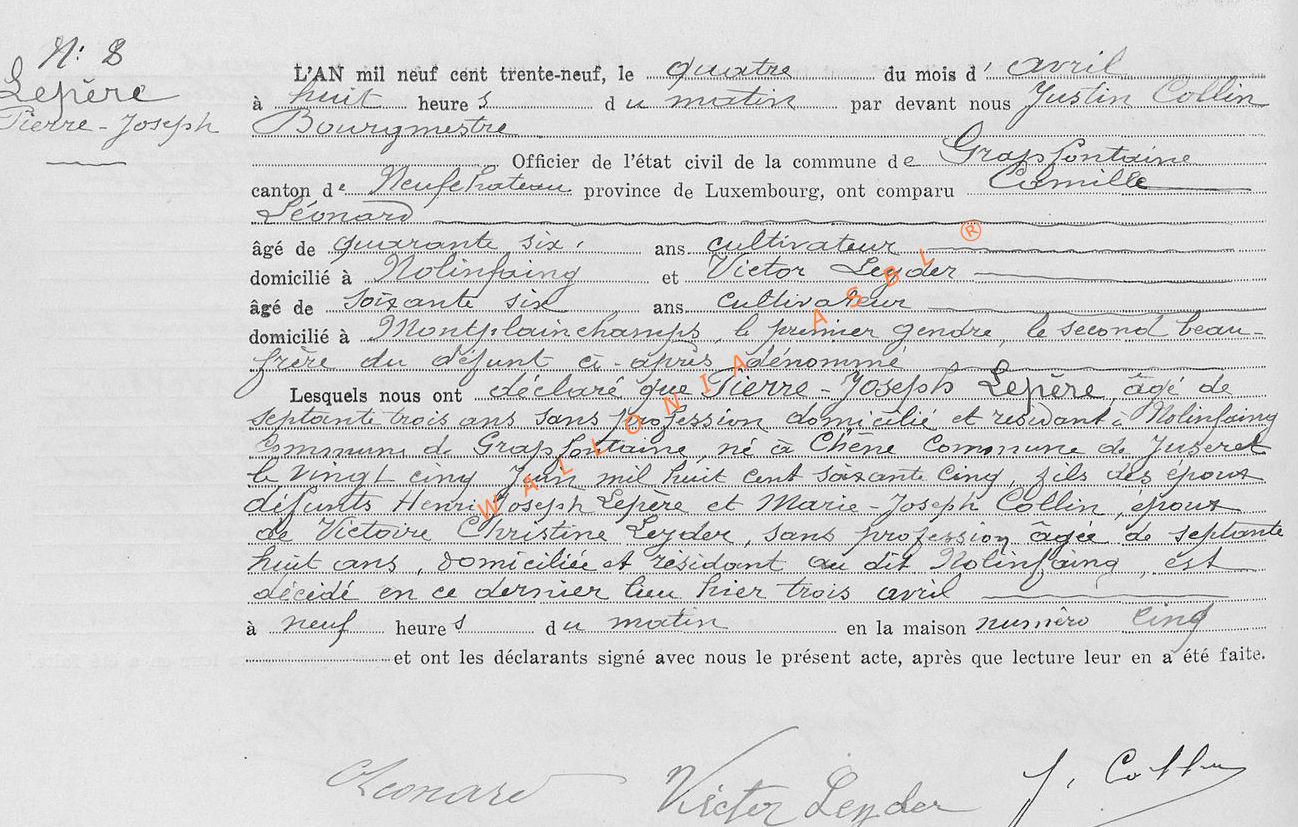 N: 8
Lepère
Pierre-Joseph
L'AN mil neuf cent trente-neuf, le quatre du mois d' avril
à huit heure s du matin par devant nous Justin Collin
Bourgmestre
Officier de l'état civil de la commune de Grapfontaine
canton de Neufchateau province de Luxembourg, ont comparu Camille
Léonard
âgé de quarante six ans cultivateur
domicilié à Nolinfaing et Victor Leyder
âgé de soixante six ans cultivateur
domicilié à Montplainchamps, le premier gendre, le second beau-
frère du défunt ci-après dénommé
Lesquels nous ont déclaré que Pierre-Joseph Lepère, âgé de
septante trois ans sans profession domicilié et résidant à Nolinfaing
Commune de Grapfontaine, né à Chêne Commune de Juseret
le vingt cinq Juin mil huit cent soixante cinq, fils des époux
défunts Henri Joseph Lepère et Marie-Joseph Collin, époux
de Victoire Christine Leyder, sans profession âgée de septante
huit ans, domiciliée et résidant au dit Nolinfaing, est
décédé en ce dernier lieu hier trois avril
à neuf heure s du matin en la maison numéro cinq
et ont les déclarants signé avec nous le présent acte, après que lecture leur en a été faite.
WALLONIA ASBL ®
CLeonard Victor Leyder J. Collin